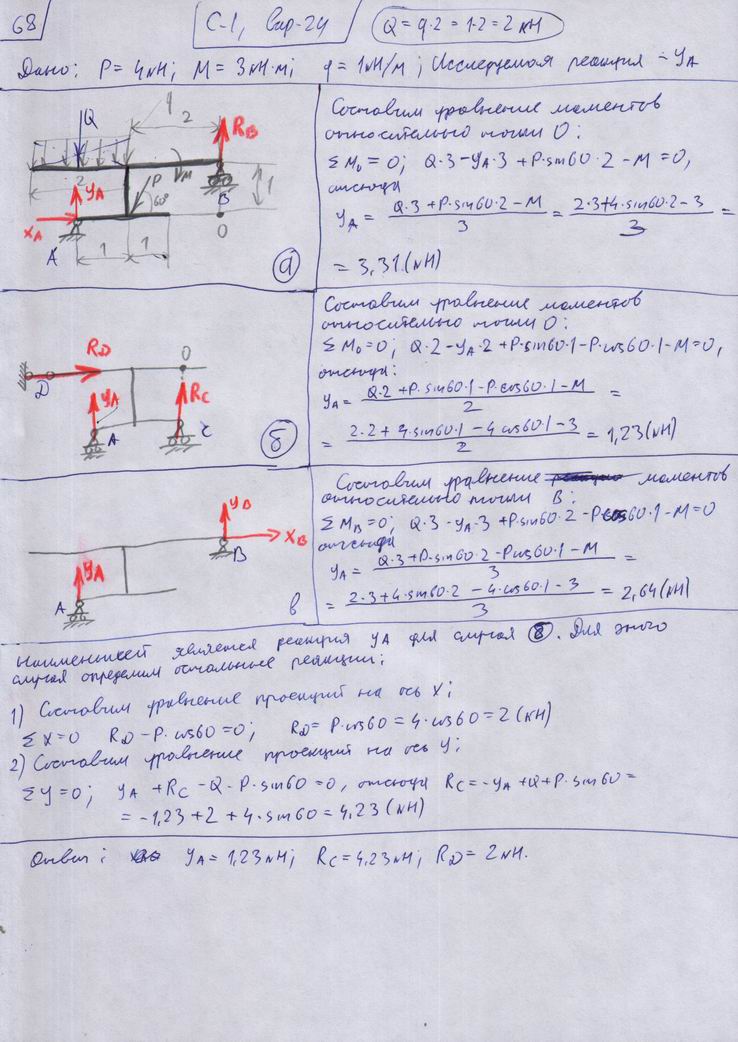 68
С-1, вар-24
Q = q·2 = 1·2 = 2 кН
Дано: P = 4кН; M = 3кН·м; q = 1кН/м; Исследуемая реакция - YA
q
Q
2
RB
2
YA
P
M
60°
1
XA
B
A
O
1
1
а
Составим уравнение моментов
относительно точки O:
ΣMo = 0; Q·3 - YA·3 + P·sin60·2 - M = 0,
отсюда
YA = (Q·3 + P·sin60·2 - M)/3 = (2·3+4·sin60·2 - 3)/3 =
= 3,31 (кН)
RD
O
D
YA
RC
A
C
б
Составим уравнение моментов
относительно точки O:
ΣMo = 0; Q·2 - YA·2 + P·sin60·1 - P·cos60·1 - M = 0,
отсюда:
YA = (Q·2 + P·sin60·1 - P·cos60·1 - M)/2 =
= (2·2 + 4·sin60·1 - 4cos60·1 - 3)/2 = 1,23 (кН)
YB
XB
B
YA
A
в
Составим уравнение моментов
относительно точки B:
ΣMB = 0; Q·3 - YA·3 + P·sin60·2 - Pcos60·1 - M = 0
отсюда
YA = (Q·3 + P·sin60·2 - Pcos60·1 - M)/3 =
= (2·3 + 4·sin60·2 - 4·cos60·1 - 3)/3 = 2,64 (кН)
Наименьшей является реакция YA для случая б. Для этого
случая определим остальные реакции:
1) Составим уравнение проекций на ось X:
ΣX = 0 RD - P·cos60 = 0; RD = P·cos60 = 4·cos60 = 2 (кН)
2) Составим уравнение проекций на ось Y:
ΣY = 0; YA + RC - Q - P·sin60 = 0, отсюда RC = -YA + Q + P·sin60 =
= -1,23 + 2 + 4·sin60 = 4,23 (кН)
Ответ: YA = 1,23кН; RC = 4,23кН; RD = 2кН.